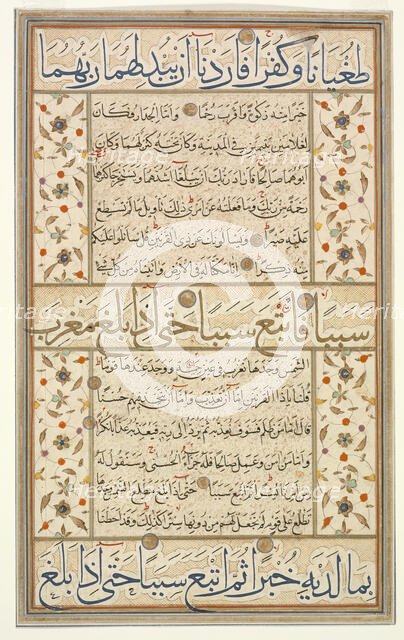 طغيانا وكفرا فاردنا ان يبدلهما ربهما
خيرا منه زكوة واقرب رحما واما الجدار فكان
لغلامين يتيمين في المدينة وكان تحته كنز لهما وكان
ابوهما صالحا فاراد ربك ان يبلغا اشدهما ويستخرجا كنزهما
رحمة من ربك وما فعلته عن امري ذلك تاويل ما لم تسطع
عليه صبرا ويسألونك عن ذي القرنين قل ساتلوا عليكم
منه ذكرا انا مكنا له في الارض واتيناه من كل شيء
سببا فاتبع سببا حتى اذا بلغ مغرب
الشمس وجدها تغرب في عين حمئة ووجد عندها قوما
قلنا ياذا القرنين اما ان تعذب واما ان تتخذ فيهم حسنا
قال اما من ظلم فسوف نعذبه ثم يرد الى ربه فيعذبه عذابا نكرا
واما من امن وعمل صالحا فله جزاء الحسنى وسنقول له
ثم اتبع سببا حتى اذا بلغ مطلع الشمس وجدها
تطلع على قوم لم نجعل لهم من دونها سترا كذلك وقد احطنا
بما لديه خبرا ثم اتبع سببا حتى اذا بلغ